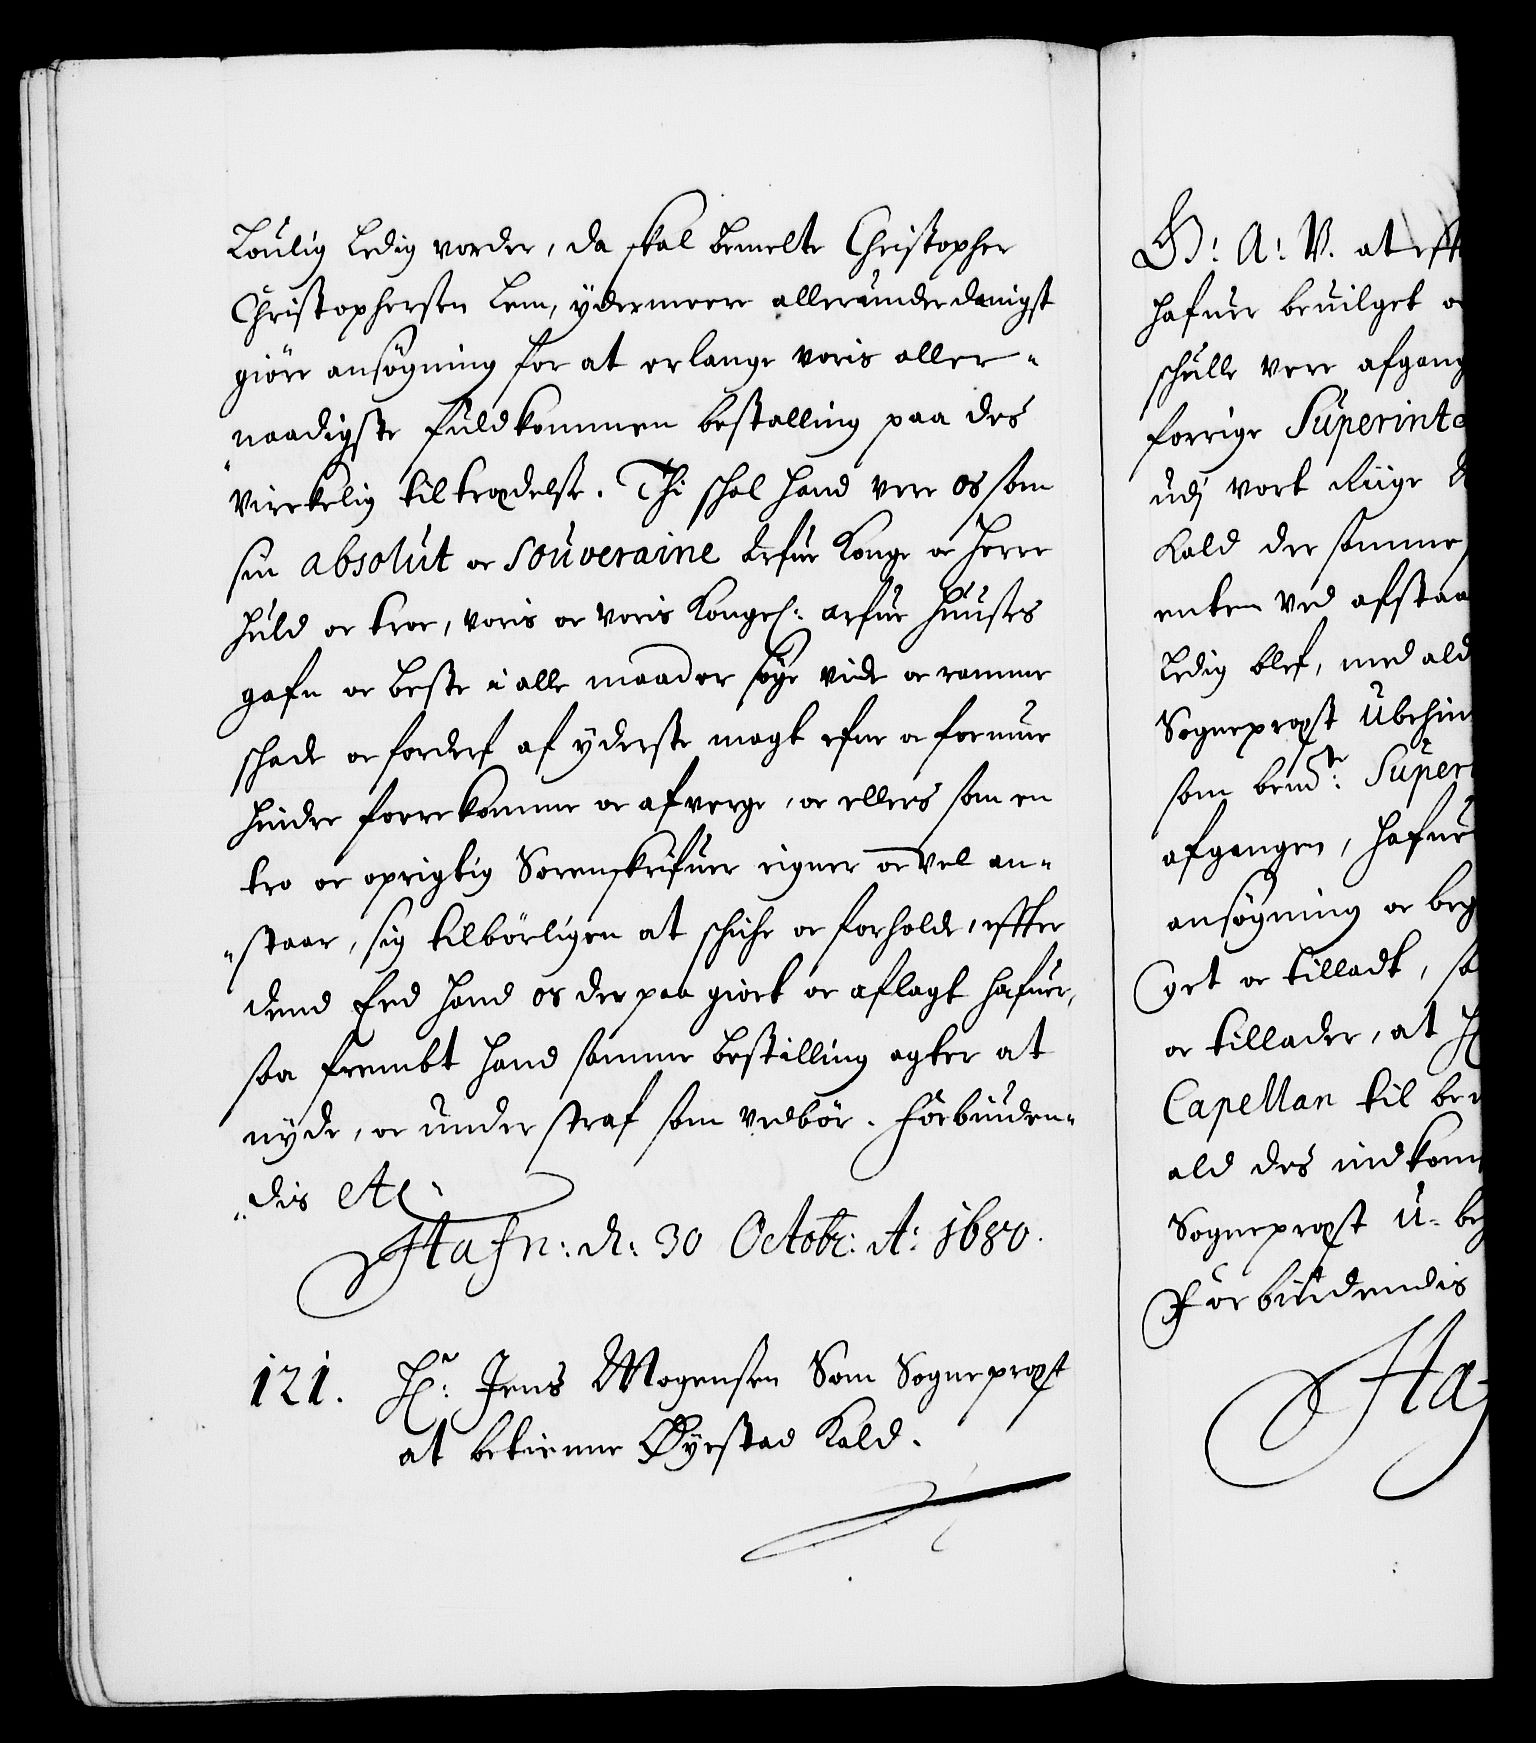 Loulig Ledig vorder, da skal bemelte Christopher
Christophersen Lem, ydermeere allerunderdanigst
giöre ansögning for at erlange voris aller-
naadigste fuldkommen bestalling paa des
virkelig tiltrædelse. Thi schal hand vere os som
sin absolut oc Souveraine Arfue Konge oc Herre
huld oc troe, voris oc voris Kongel: arfue Huuses
gafn oc beste i alle maader söge vide oc ramme
schade oc forderf af yderste magt efne oc formue
hindre forrekomme oc afverge, oc ellers som en
tro oc oprigtig Sorenskrifuer eigner oc vel an-
staar, sig tilbörligen at schicke oc forholde, effter
dend Eed hand os der paa giort oc aflagt hafuer,
saa frembt hand samme bestilling agter at
nyde, oc under straf som vedbör. Forbiuden-
dis etc
Hafn: d: 30 Octobr: A: 1680.
121. Hr: Jens Mogensen Som Sognepræst
at betienne Öyestad Kald.
G: A: V. at efft
hafuer beuilget oc
schulle vere afgang
forrige Superinte
udj vort Riige
Kald der samme
enten ved afstaa
Ledig blef, med ald
Sognepræst Ubehin
som bemte: Super
afgangen, hafuer
ansögning oc beg
get oc tilladt, sa
oc tillader, at H
Capellan til be
ald des indkom
Sognepræst U-be
Forbiudendis
Haf